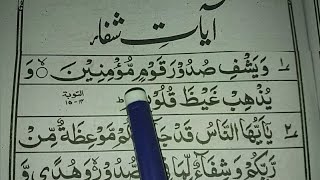 آیاتِ شفاء
۱ وَيَشْفِ صُدُوْرَ قَوْمٍ مُّؤْمِنِيْنَ ۙ وَ
يُذْهِبْ غَيْظَ قُلُوْ التوبة ۱۴-۱۵
۲ يٰٓاَيُّهَا النَّاسُ قَدْ جَآ مَّوْعِظَةٌ مِّنْ
رَّبِّكُمْ وَشِفَآءٌ لِّمَا صُدُوْرِ وَهُدًى وَّ